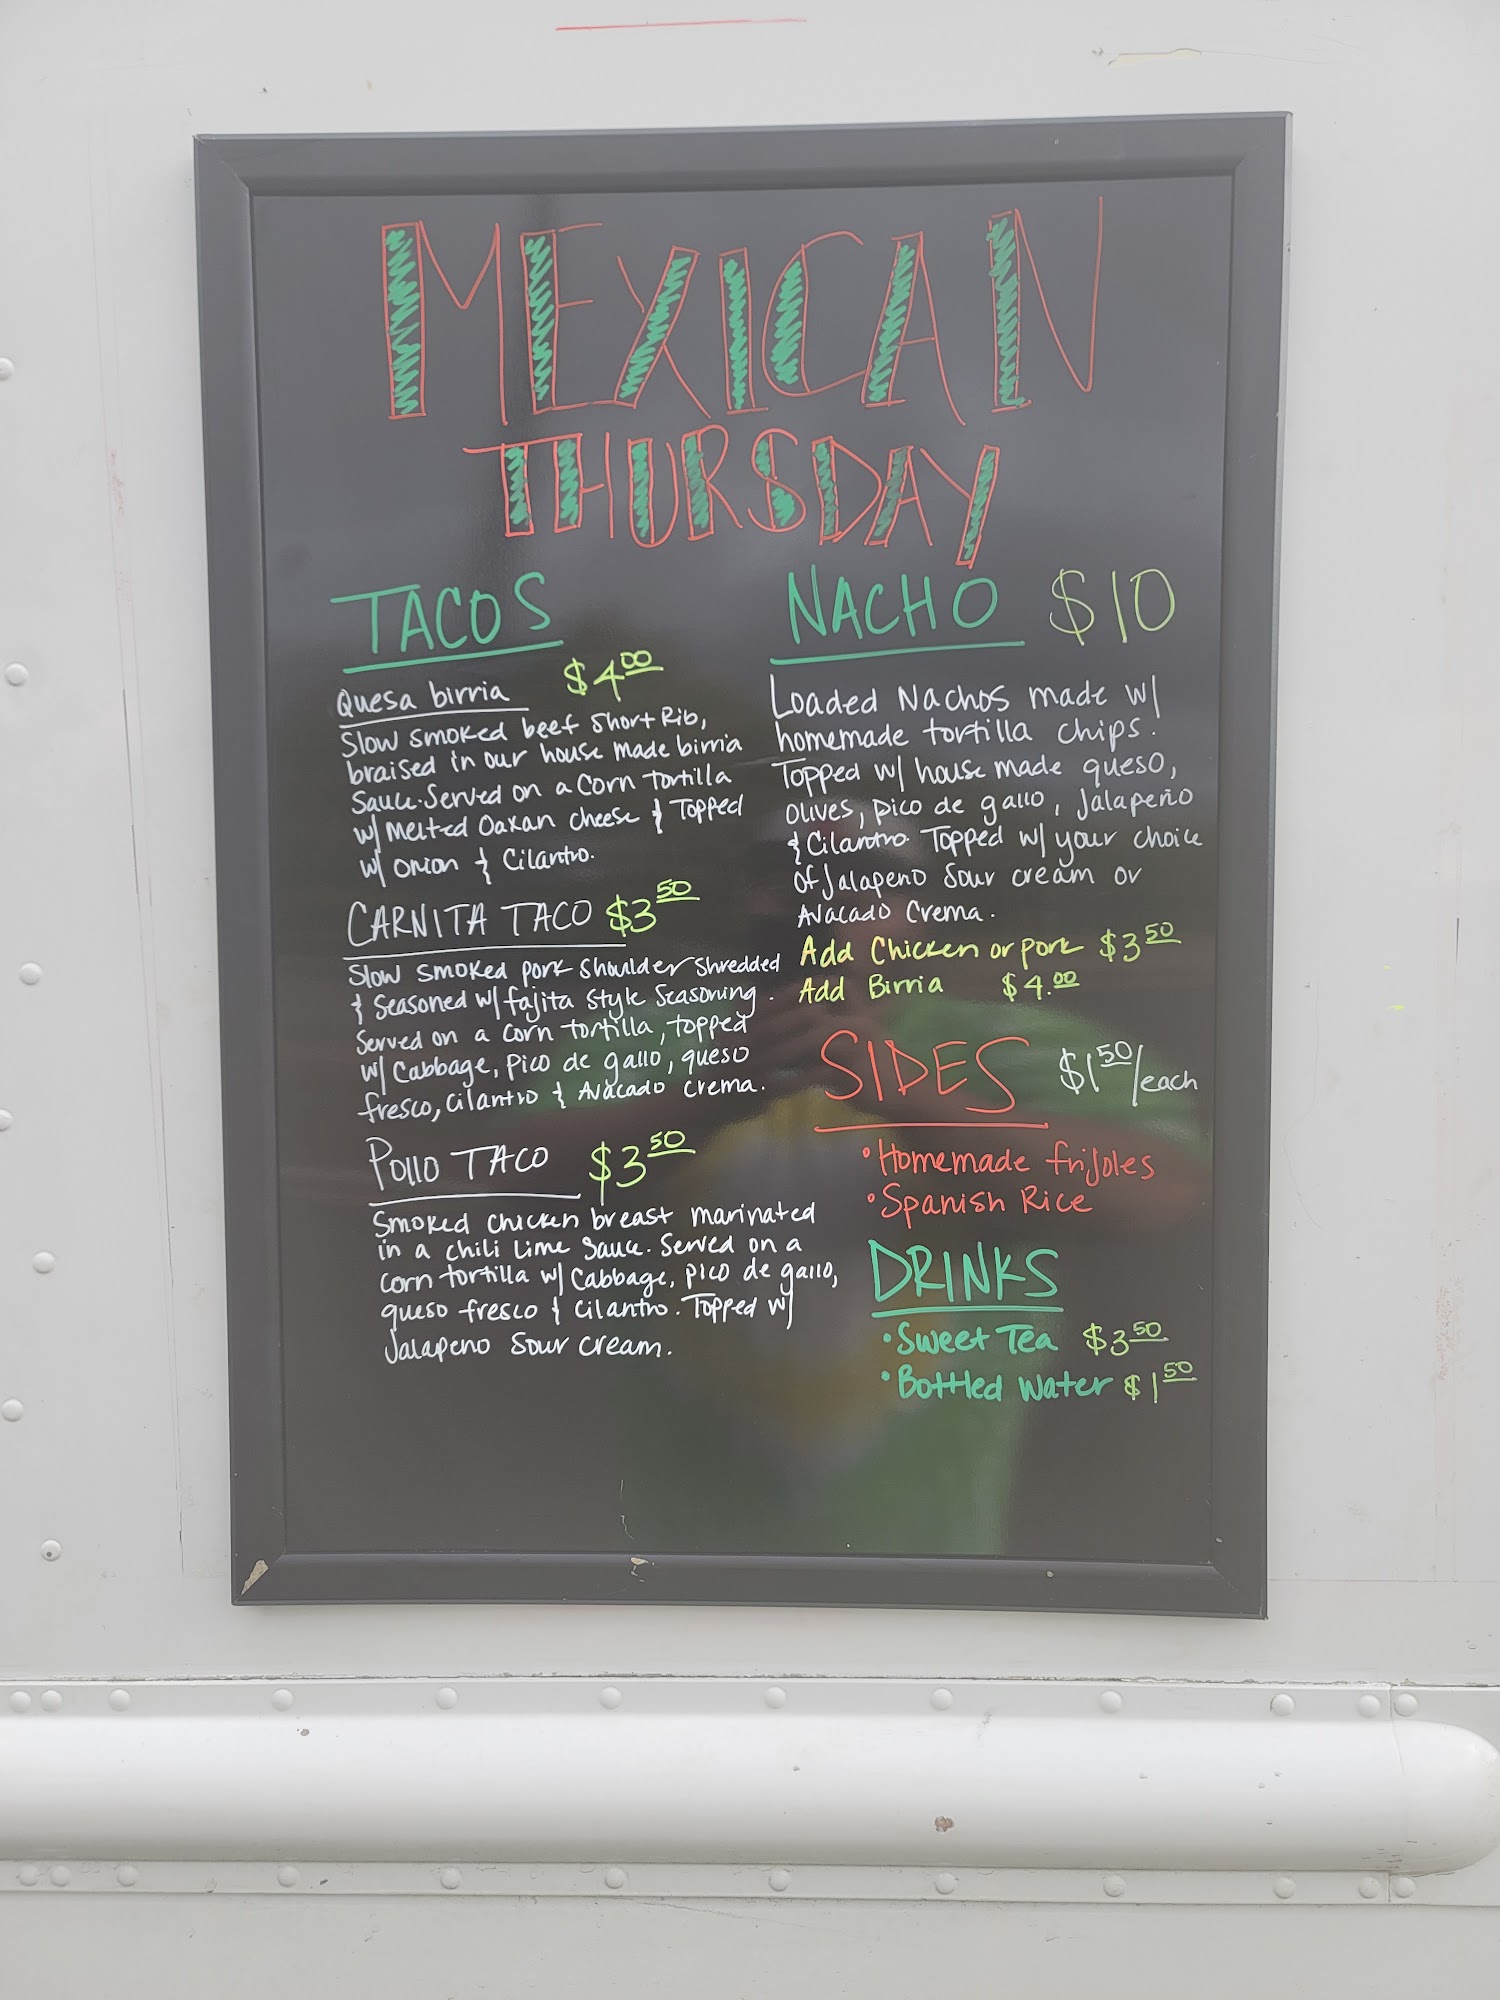 MEXICAN
THURSDAY
TACOS
Quesa birria $4.00
Slow smoked beef Short Rib,
braised in our house made birria
Sauce. Served on a corn tortilla
w/ Melted Oaxan cheese & Topped
w/ onion & Cilantro.
CARNITA TACO $3.50
Slow smoked pork shoulder shredded
& seasoned w/ fajita style seasoning.
Served on a corn tortilla, topped
w/ Cabbage, pico de gallo, queso
fresco, cilantro & Avacado crema.
Pollo TACO $3.50
Smoked chicken breast marinated
in a chili Lime Sauce. Served on a
corn tortilla w/ Cabbage, pico de gallo,
queso fresco & Cilantro. Topped w/
Jalapeno Sour cream.
NACHO $10
Loaded Nachos made w/
homemade tortilla chips.
Topped w/ house made queso,
olives, pico de gallo, Jalapeño
& Cilantro. Topped w/ your choice
of Jalapeno Sour cream or
Avacado Crema.
Add Chicken or pork $3.50
Add Birria $4.00
SIDES $1.50/each
• Homemade frijoles
• Spanish Rice
DRINKS
• Sweet Tea $3.50
• Bottled Water $1.50